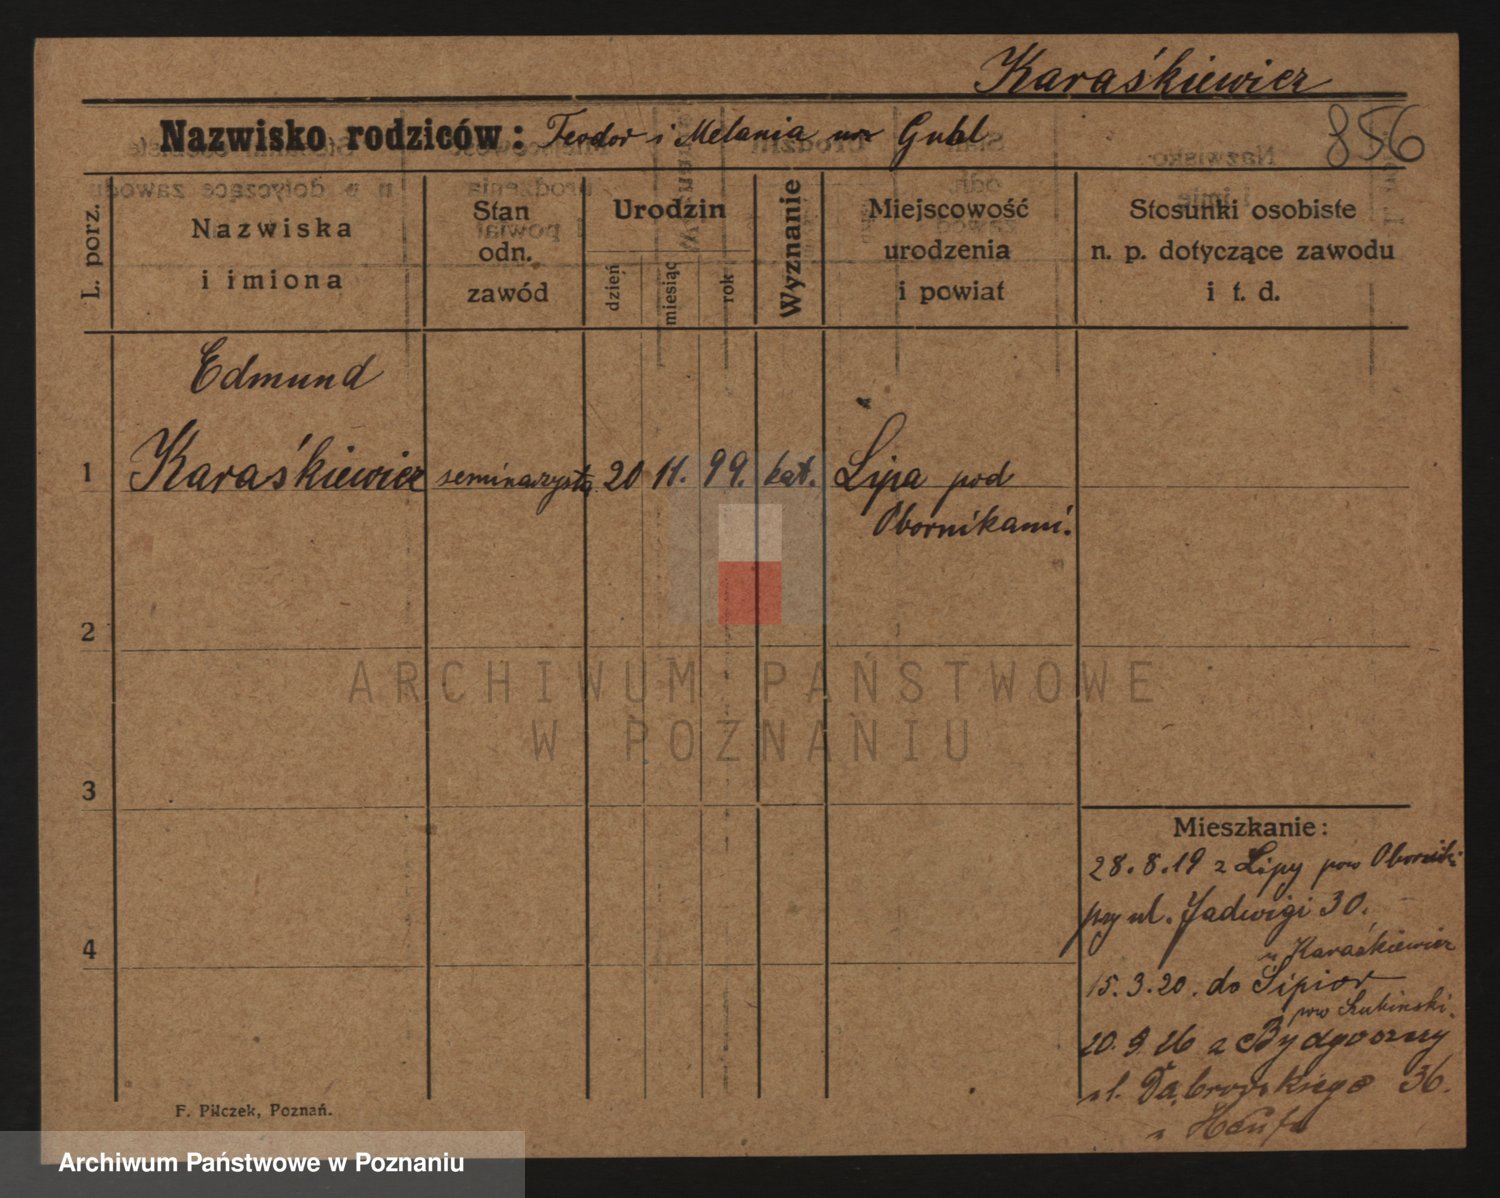 Karaśkiewicz
Nazwisko rodziców: Teodor i Melania urz Gubl
856
L. porz.
Nazwiska
i imiona
Stan
odn.
zawód
Urodzin
dzień
miesiąc
rok
Wyznanie
Miejscowość
urodzenia
i powiat
Stosunki osobiste
n. p. dotyczące zawodu
i t. d.
Edmund
1 Karaśkiewicz seminarzysta 20 11. 99. kat. Lipa pod
Obornikami.
2
ARCHIWUM PAŃSTWOWE
W POZNANIU
3
Mieszkanie:
28.8.19 z Lipy pow Oborniki
przy ul. Jadwigi 30.
u Karaśkiewicz
4
15.3.20. do Sipior
pow Szubinski.
20.9.26 z Bydgoszczy
ul. Dąbrowskiego 36.
F. Pilczek, Poznań.
Archiwum Państwowe w Poznaniu